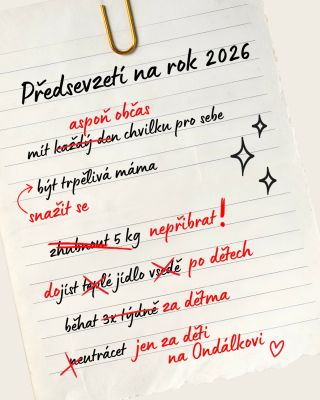 Předsevzetí na rok 2026
aspoň občas
mít každý den chvilku pro sebe
být trpělivá máma
snažit se
zhubnout 5 kg nepřibrat!
dojíst teplé jídlo vsedě po dětech
běhat 3x týdně za dětma
neutrácet jen za děti
na Ondálkovi